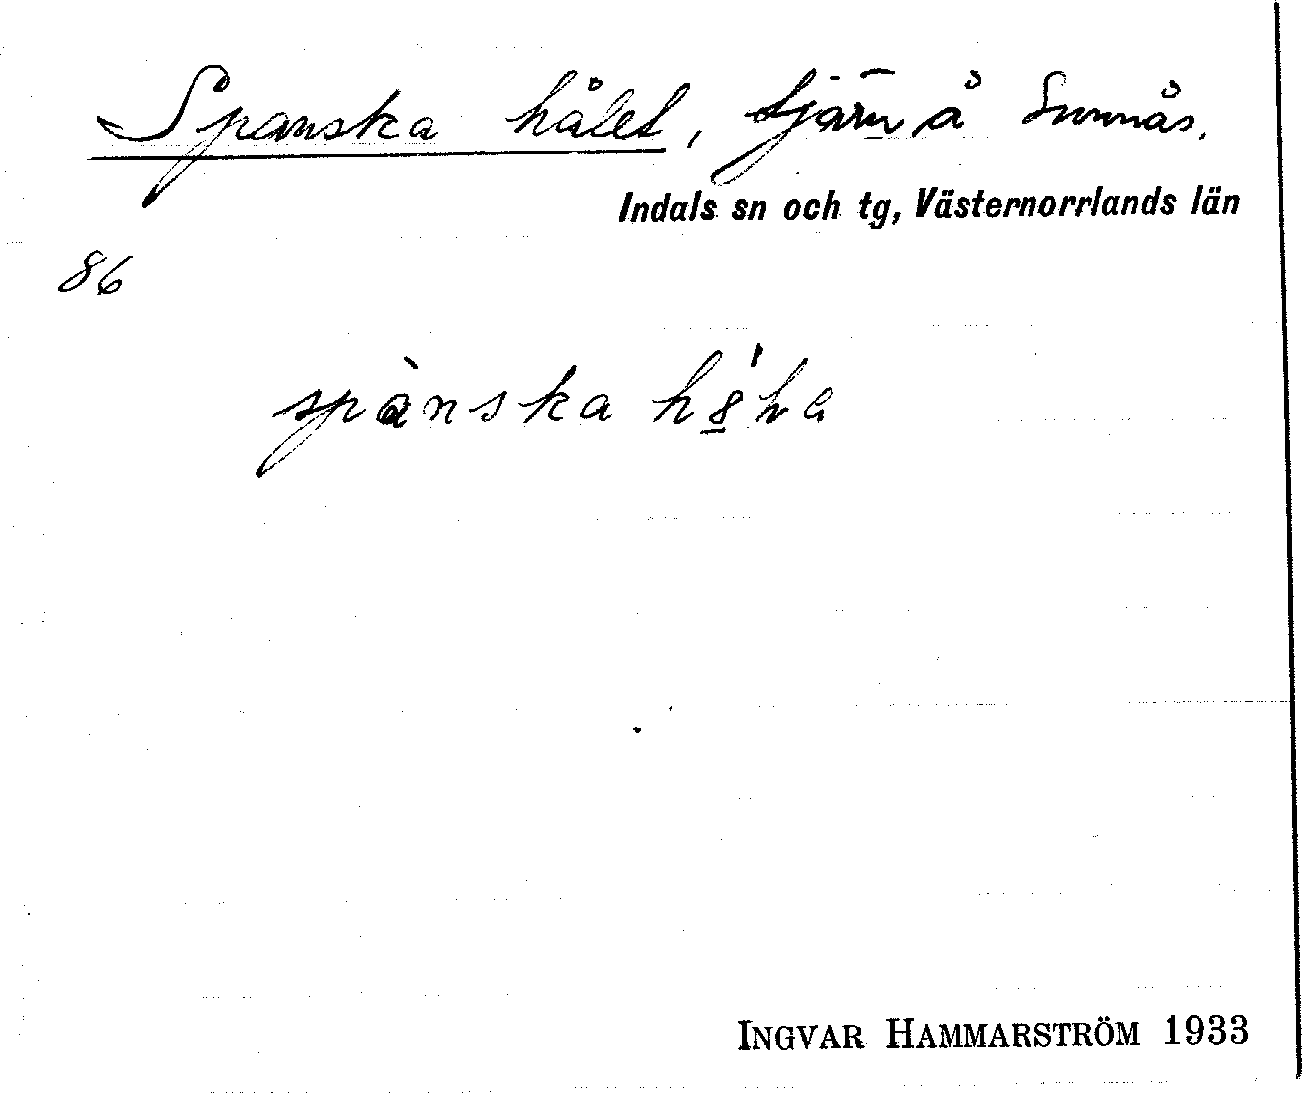 Spanska hålet, tjärn å Sunnås.
Indals sn och tg, Västernorrlands län
86
spànska
INGVAR HAMMARSTRÖM 1933